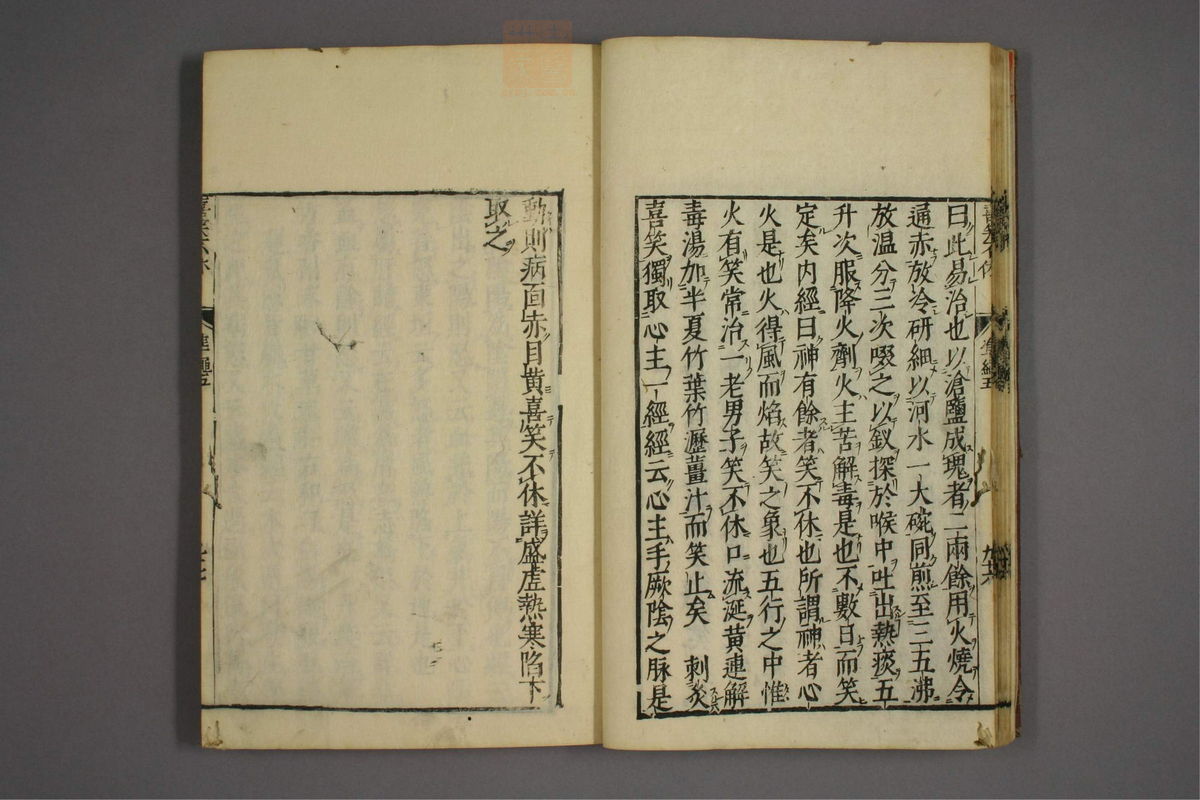 曰此易治也以滄鹽成塊者二兩餘用火燒令
通赤放冷研細以河水一大碗同煎至三五沸
放温分三次啜之以釵探於喉中吐出熱痰五
升次服降火劑火主苦解毒是也不數日而笑
定矣内經曰神有餘者笑不休也所謂神者心
火是也火得風而焰故笑之象也五行之中惟
火有笑常治一老男子笑不休口流涎黄連解
毒湯加半夏竹葉竹瀝薑汁而笑止矣　刺灸
喜笑獨取心主一經經云心主手厥陰之脉是
動則病面赤目黄喜笑不休詳盛虚熱寒陷下
取之